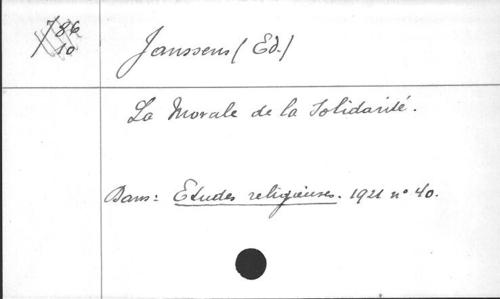 786
10
Janssens (Ed.)
La Morale de la Solidarité.
Dans: Etudes religieuses. 1921 n° 40.